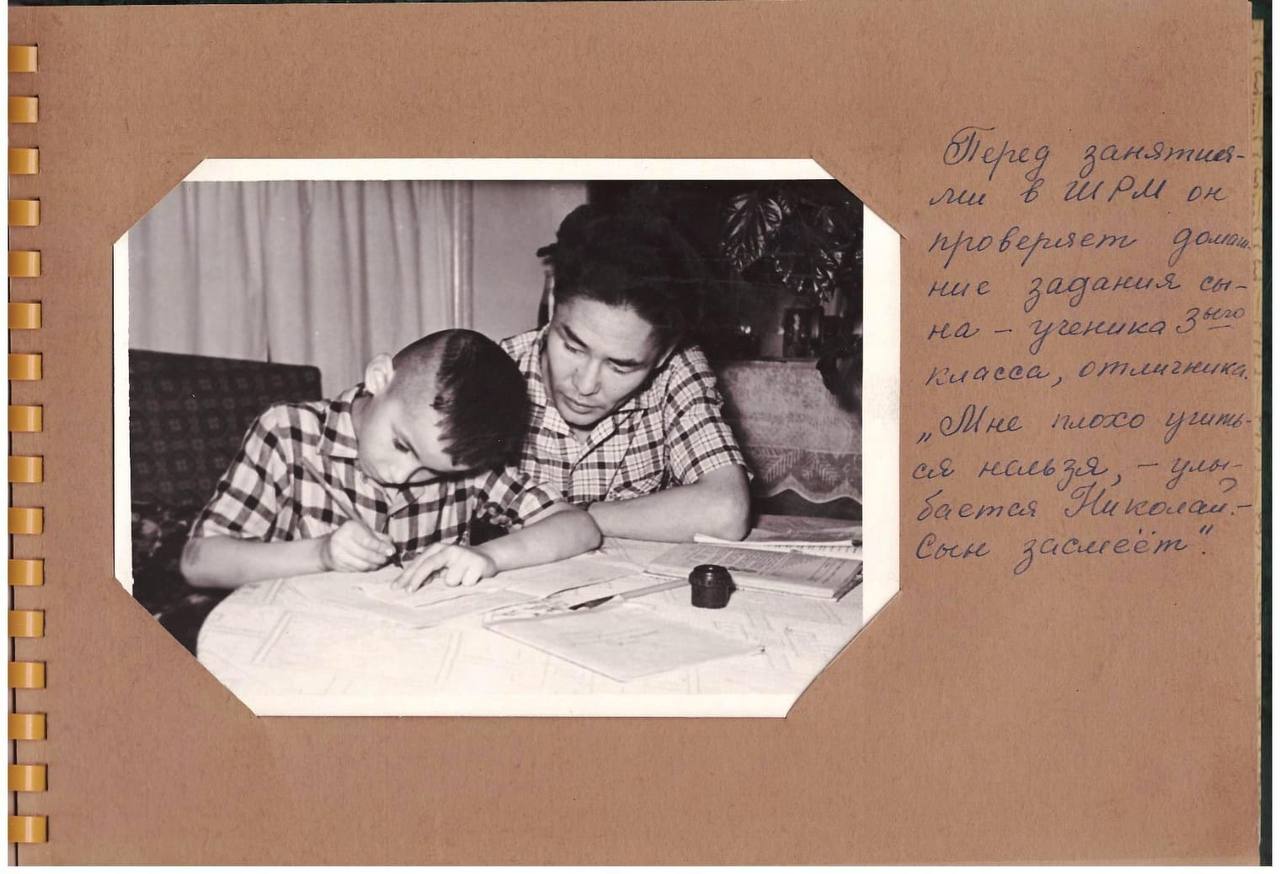 Перед занятия-
ми в ШРМ он
проверяет домаш-
ние задания сы-
на – ученика 3ьего
класса, отличника.
„Мне плохо учить-
ся нельзя, – улы-
бается Николай. –
Сын засмеёт".